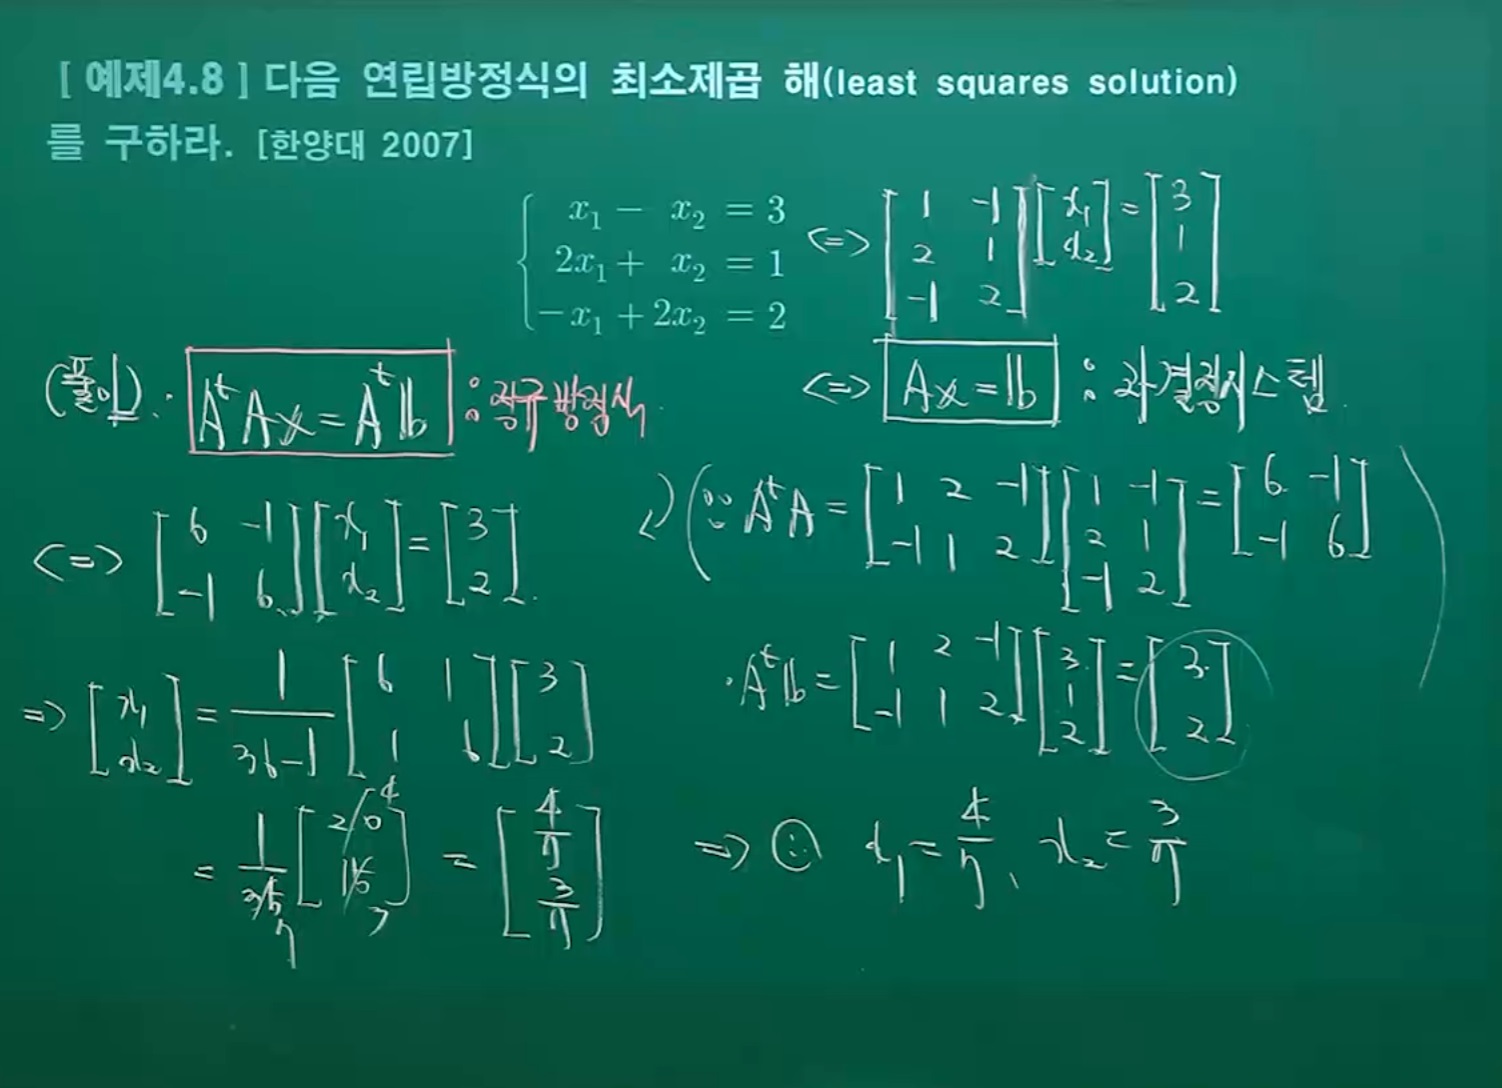 [ 예제4.8 ] 다음 연립방정식의 최소제곱 해(least squares solution)
를 구하라. [한양대 2007]
x₁ − x₂ = 3
2x₁ + x₂ = 1
−x₁ + 2x₂ = 2
<=> [1 -1; 2 1; -1 2] [x₁; x₂] = [3; 1; 2]
<=> Ax = b : 과결정시스템.
(풀이) · AᵗAx = Aᵗb : 정규방정식.
<=> [6 -1; -1 6] [x₁; x₂] = [3; 2].
(∵ AᵗA = [1 2 -1; -1 1 2] [1 -1; 2 1; -1 2] = [6 -1; -1 6]
· Aᵗb = [1 2 -1; -1 1 2] [3; 1; 2] = [3; 2] )
=> [x₁; x₂] = 1/(36-1) [6 1; 1 6] [3; 2]
= 1/35 [20; 15] = [4/7; 3/7]
=> ∴ x₁ = 4/7, x₂ = 3/7